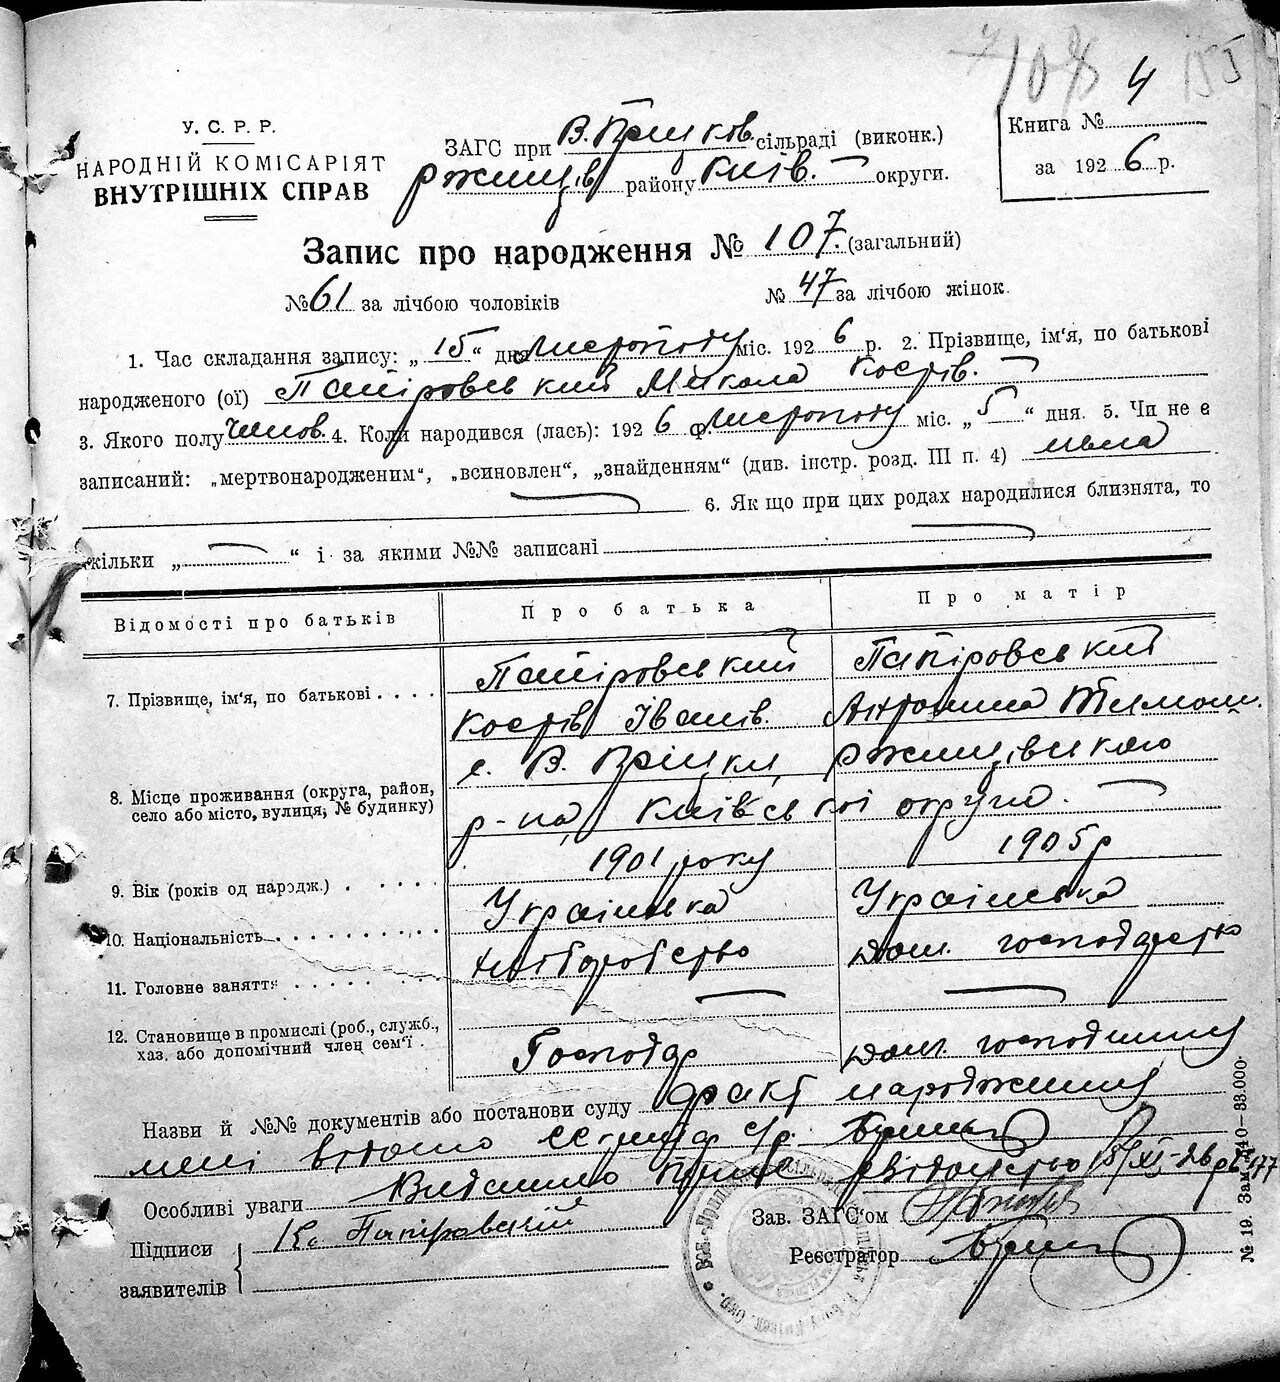 4
У. С. Р. Р.
НАРОДНІЙ КОМІСАРІЯТ
ВНУТРІШНІХ СПРАВ
ЗАГС при В. Прицків. сільраді (виконк.)
Ржищів району Київ. округи.
Книга № 4
за 1926 р.
Запис про народження № 107. (загальний)
№ 61 за лічбою чоловіків № 47 за лічбою жінок.
1. Час складання запису: „ 15 “ дня листопаду міс. 1926 р. 2. Прізвище, ім‘я, по батькові
народженого (ої) Папіровський Микола Костів.
3. Якого полу чолов. 4. Коли народився (лась): 1926 р. листопаду міс. „ 5 “ дня. 5. Чи не є
записаний: „мертвонародженим“, „всиновлен“, „знайденням“ (див. інстр. розд. III п. 4) нема
6. Як що при цих родах народилися близнята, то
скільки „ “ і за якими №№ записані
Відомості про батьків Про батька Про матір
7. Прізвище, ім‘я, по батькові Папіровський Папіровський
Костів Іванів. Антонина
8. Місце проживання (округа, район, с. В. Прицки, Ржищівського
село або місто, вулиця, № будинку) р-на, Київської округи.
9. Вік (років од народж.) 1901 року 1905 р
10. Національність Українська Українська
11. Головне заняття хліборобство дом. господарство
12. Становище в промислі (роб., служб.,
хаз. або допомічний член сем‘ї Господар дом. господиня
Назви й №№ документів або постанови суду факт народження
мені відомо
Особливі уваги Видано свідоцтво
Підписи
заявителів Папіровський
Зав. ЗАГС‘ом
Реєстратор